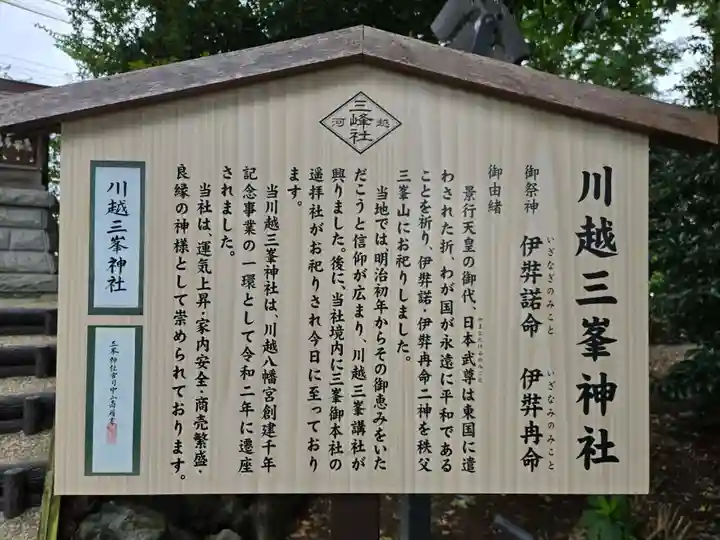 三峰社
河越
川越三峯神社
御祭神
伊弉諾命
いざなぎのみこと
伊弉冉命
いざなみのみこと
御由緒
景行天皇の御代、日本武尊は東国に遣
やまとたけるのみこと
わされた折、わが国が永遠に平和である
ことを祈り、伊弉諾・伊弉冉命二神を秩父
三峯山にお祀りしました。
当地では、明治初年からその御恵みをいた
だこうと信仰が広まり、川越三峯講社が
興りました。後に、当社境内に三峯御本社の
遥拝社がお祀りされ今日に至っており
ます。
当川越三峯神社は、川越八幡宮創建千年
記念事業の一環として令和二年に遷座
されました。
当社は、運気上昇・家内安全・商売繁盛・
良縁の神様として崇められております。
川越三峯神社